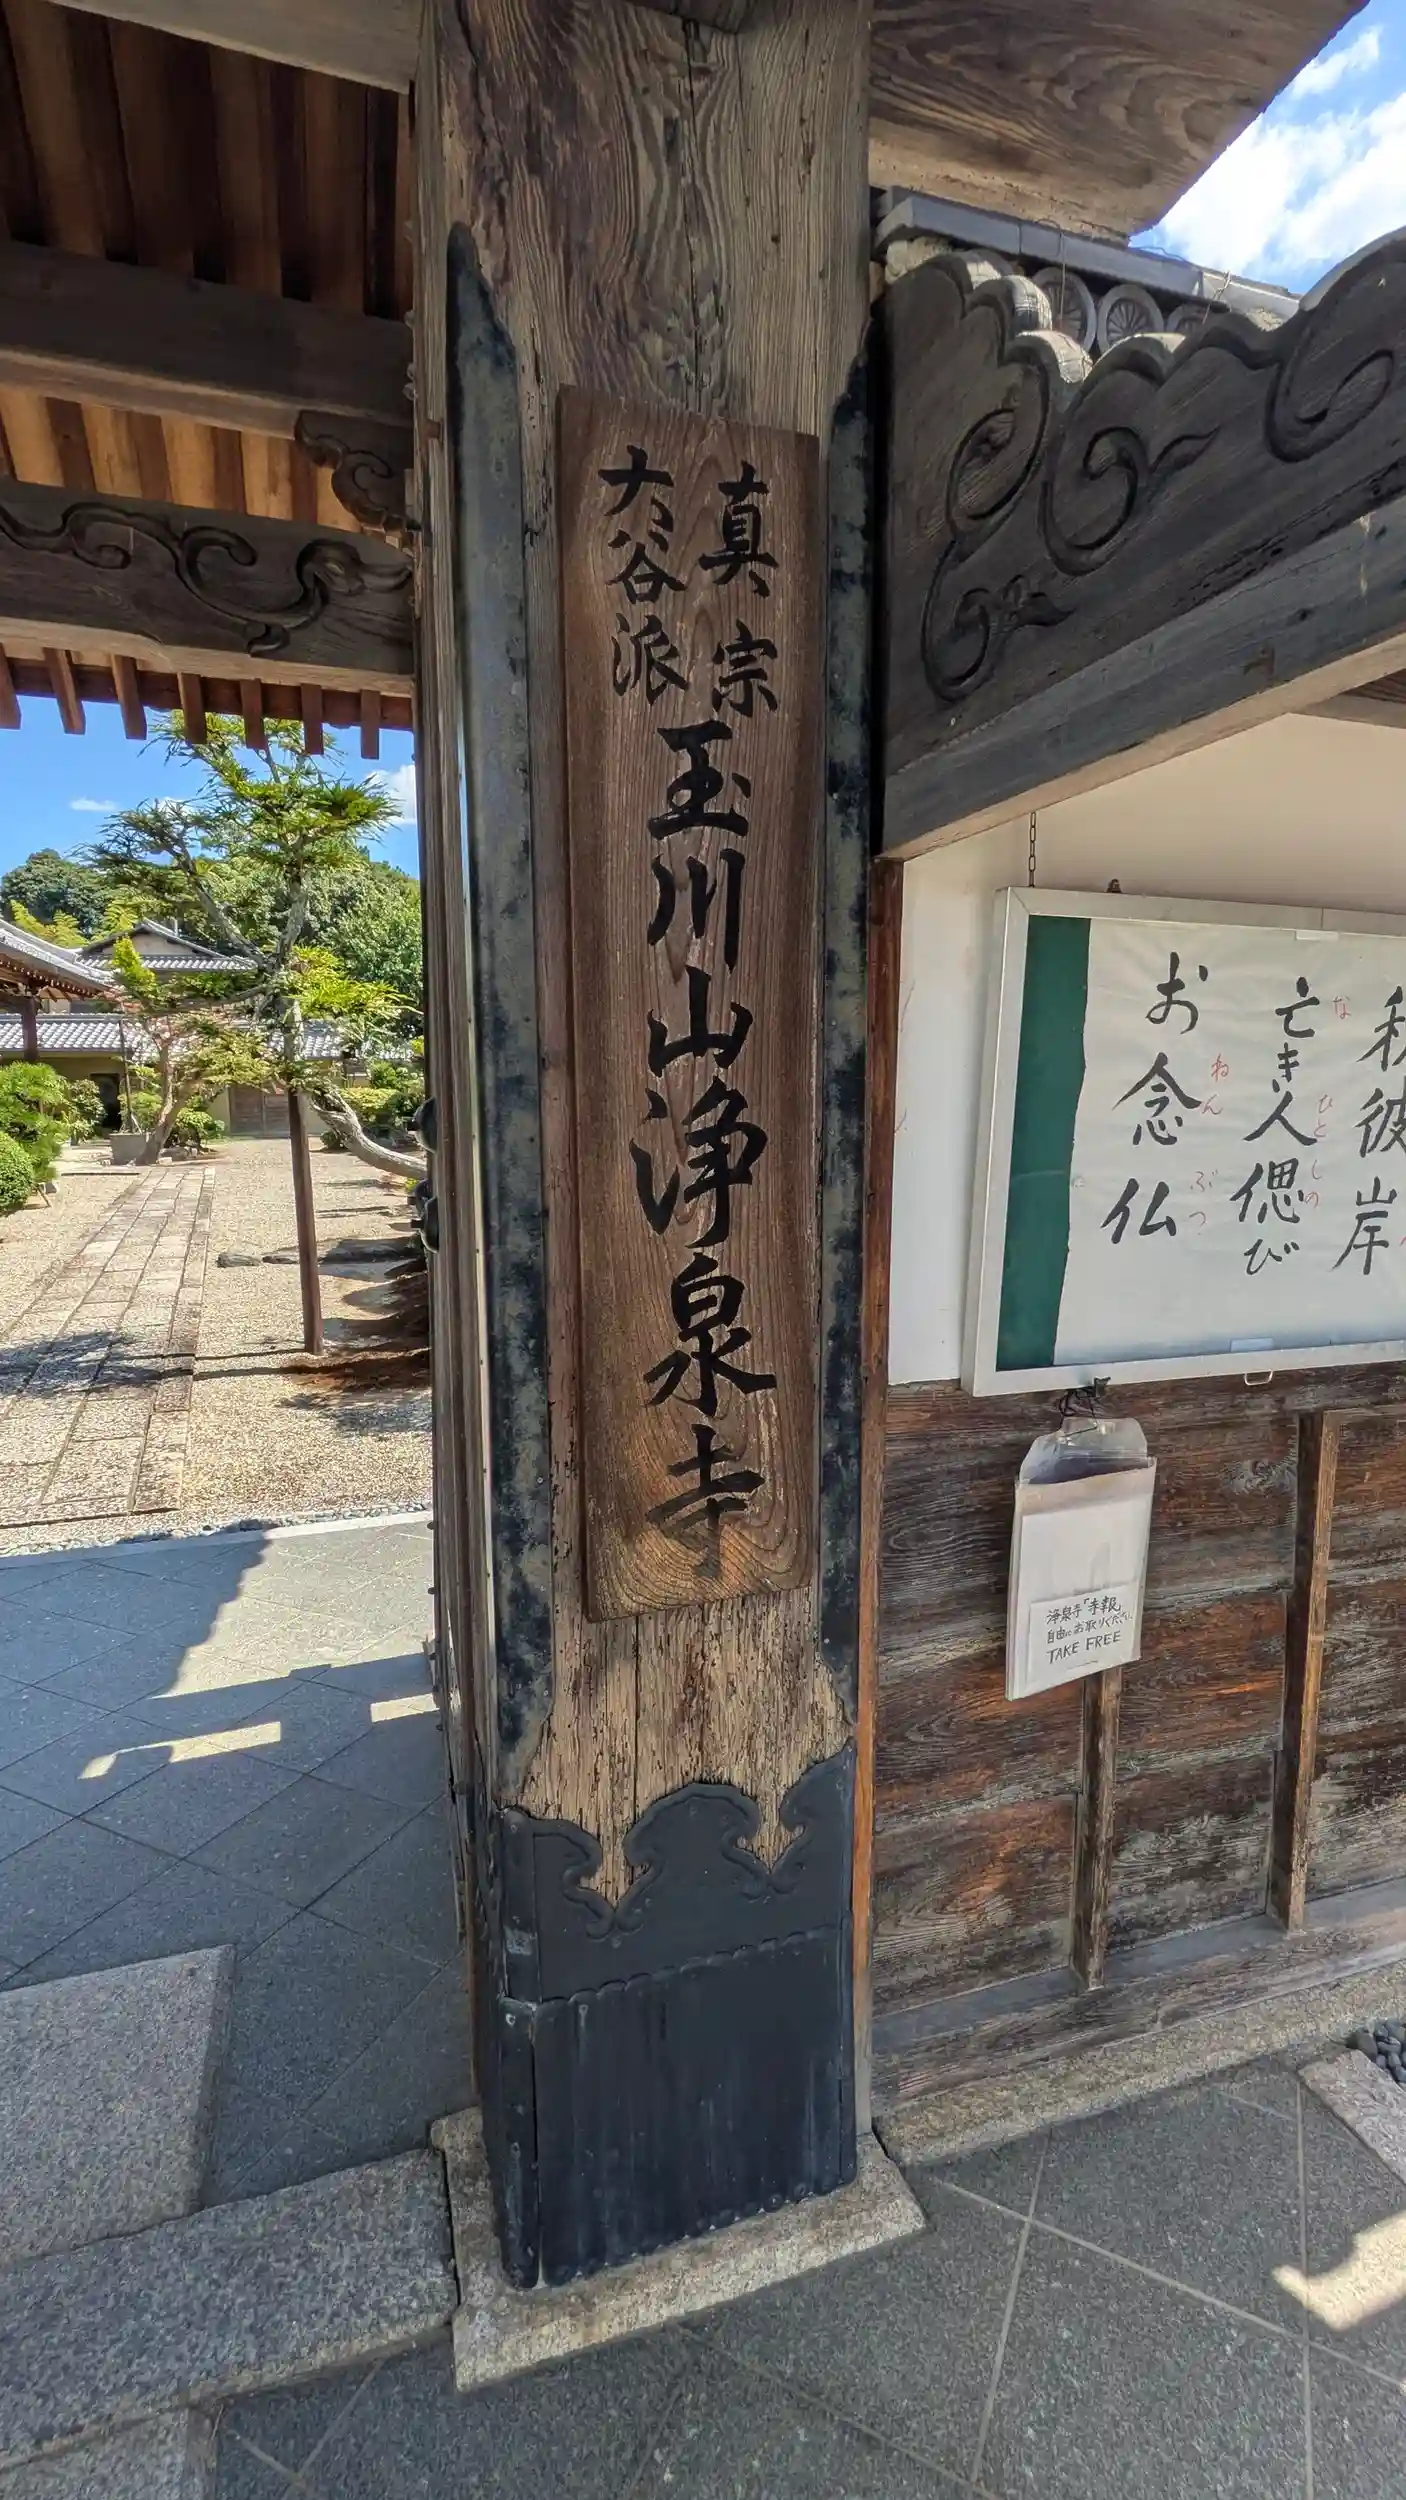 真宗
大谷派
玉川山浄泉寺
秋彼岸
亡き人偲び
な ひと しの
お念仏
ねん ぶつ
浄泉寺「寺報」
自由にお取りください。
TAKE FREE